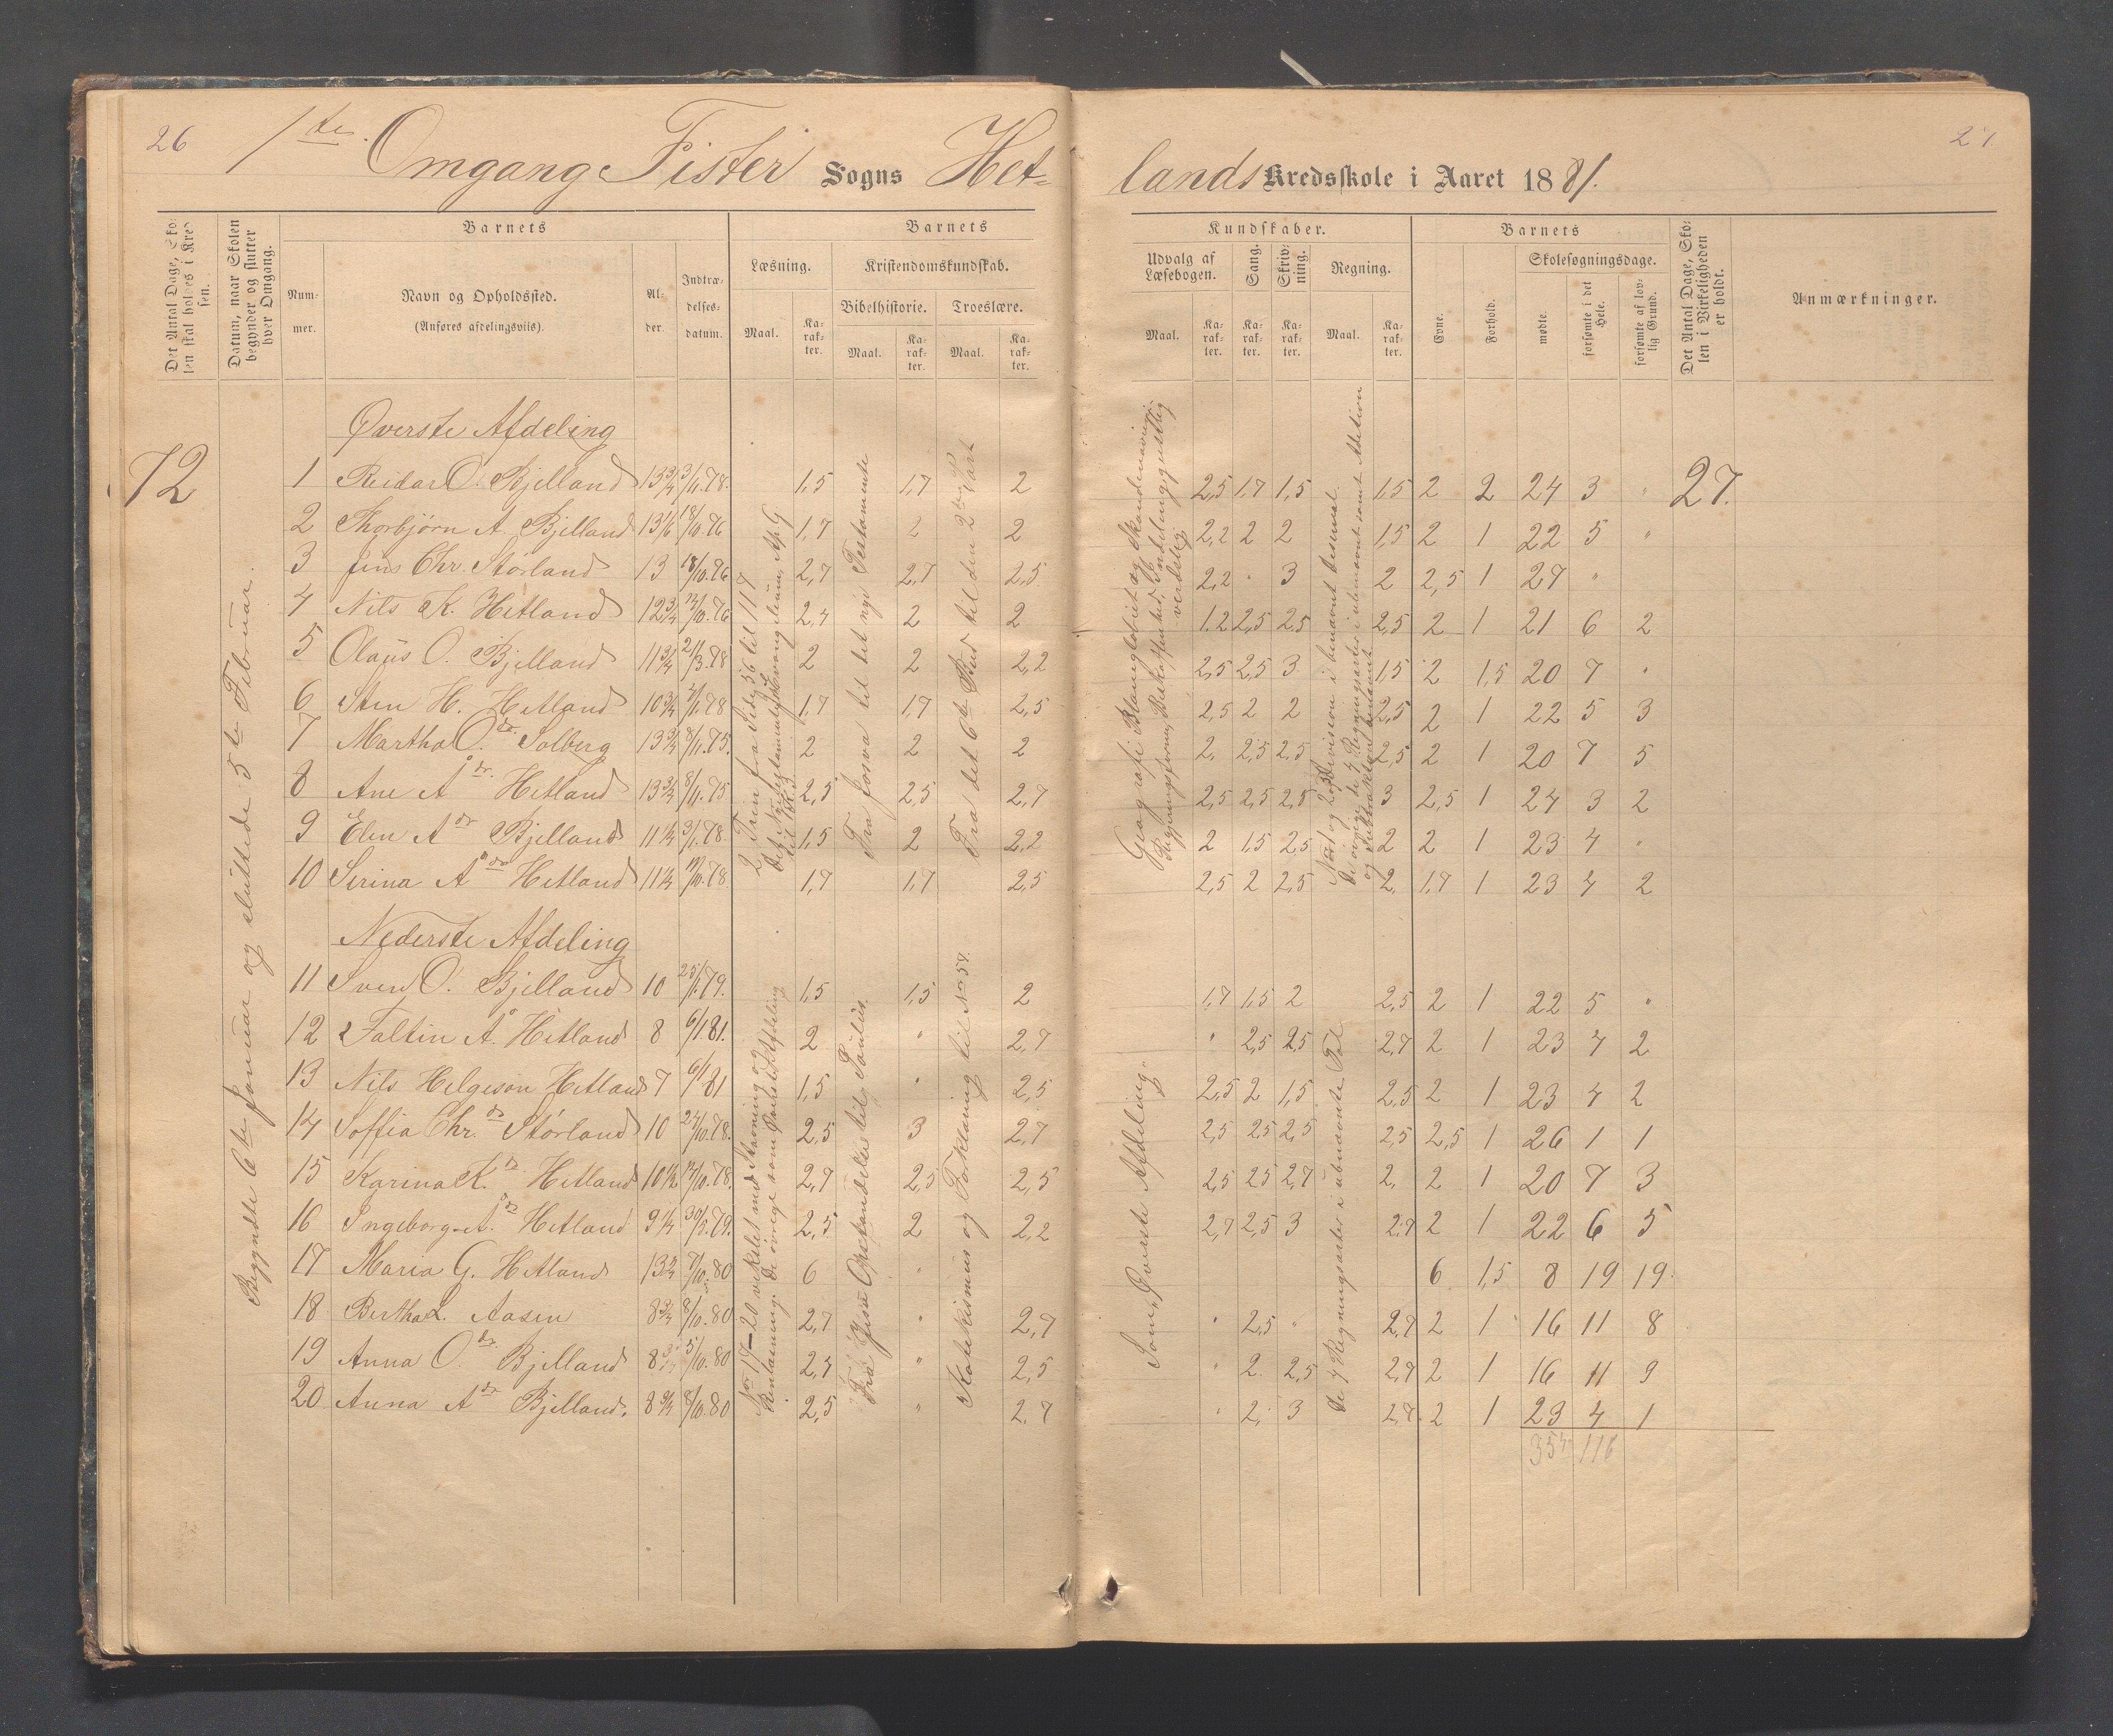 26
1ste Omgang Fister Sogns Het-
lands Kredsskole i Aaret 1881.
27
Det Antal Dage, Skolen skal holdes i Kredsen.
Datum, naar Skolen begynder og slutter hver Omgang.
Barnets
Nummer.
Navn og Opholdssted.
(Anføres afdelingsviis).
Alder.
Indtrædelsesdatum.
Barnets
Læsning.
Kristendomskundskab.
Bibelhistorie.
Troeslære.
Maal.
Karakter.
Maal.
Karakter.
Maal.
Karakter.
Kundskaber.
Udvalg af Læsebogen.
Sang.
Skrivning.
Regning.
Maal.
Karakter.
Karakter.
Karakter.
Maal.
Karakter.
Barnets
Evne.
Forhold.
Skolesøgningsdage.
mødte.
forsømte i det Hele.
forsømte af lovlig Grund.
Det Antal Dage, Skolen i Virkeligheden er holdt.
Anmærkninger.
72
Begyndte 6te Januar og sluttede 5te Februar.
Øverste Afdeling
1 Reidar O. Bjelland 13 3/4 3/11.78. 1,5 1,7 2 2,5 1,7 1,5 1,5 2 2 24 3 " 27.
2 Thorbjørn A. Bjelland 13 1/6 18/10.76 1,7 2 2 2,2 2 2 1,5 2 1 22 5 "
3 Jens Chr. Störland 13 18/10.76 2,7 2,7 2,5 2,2 " 3 2 2,5 1 27 "
4 Nils K. Hetland 12 3/4 12/10.76 2,4 2 2 1.2 2,5 2,5 2,5 2 1 21 6 2
5 Olaus O. Bjelland 11 3/4 21/3.78 2 2 2,2 2,5 2,5 3 1,5 2 1,5 20 7 "
6 Sten H. Hetland 10 3/4 7/1.78 1,7 1,7 2,5 2,5 2 2 2,5 2 1 22 5 3
7 Martha O.dr. Solberg 13 3/4 8/11.75. 2 2 2 2. 2,5 2,5 2,5 2 1 20 7 5
8 Ane Å dr. Hetland 13 3/4 8/11.75 2,5 2,5 2,7 2,5 2,5 2,5 3 2,5 1 24 3 2
9 Elen A dr Bjelland 11 1/4 3/1.78. 1,5 2 2,2 2 1,5 2,5 2 2 1 23 4 "
10 Serina Å dr Hetland 11 1/4 10/10.78. 1,7 1,7 2,5 2,5 2 2,5 2. 1,7 1 23 4 2
2 Trin fra Side 56 til 117
Fra Josva til det nye Testamente
Fra det 6te Bud til den 2den Part
Nederste Afdeling
11 Svend O. Bjelland 10 25/1.79. 1,5 1,5 2 1,7 1,5 2 2,5 2 1 22 5 "
12 Faltin Å. Hetland 8 6/1.81. 2 " 2,7 " 2,5 2,5 2,7 2 1 23 4 2
13 Nils Helgeson Hetland 7 6/1 81 1,5 " 2,5 2,5 2 1,5 2,5 2 1 23 4 2
14 Soffia Chr. dr Störland 10 24/10.78. 2,5 3 2,7 2,5 2,5 2,5 2,5 2,5 1 26 1 1
15 Karina K. dr Hetland 10 1/2 12/10.78. 2,7 2,5 2,5 2,5 2,5 2,7 2. 2 1 20 7 3
16 Ingeborg Å. dr Hetland 9 1/4 30/5.79. 2,5 2 2,2 2,7 2,5 3 2,7 2 1 22 6 5
17 Maria G. Hetland 13 3/4 7/10.80 6 " 6 1,5 8 19 19
18 Bertha L. Aasen 8 3/4 8/10.80 2,7 " 2,7 " 2,5 " 2,7 2 1 16 11 8
19 Anna O. dr. Bjelland 8 3/4 5/10.80 2,7 " 2,5 " 2 2,5 2,7 2 1 16 11 9
20 Anna A dr Bjelland. 8 3/4 8/10.80 2,5 " 2,7 " 2, 3 2,7. 2 1 23 4 1
Fra Jesu Opstandelse til Paulus.
Katekismus og Forklaring til No 58.
Som „Øverste Afdeling"
De 4 Regningsarter i ubenævnte Tal
354 116